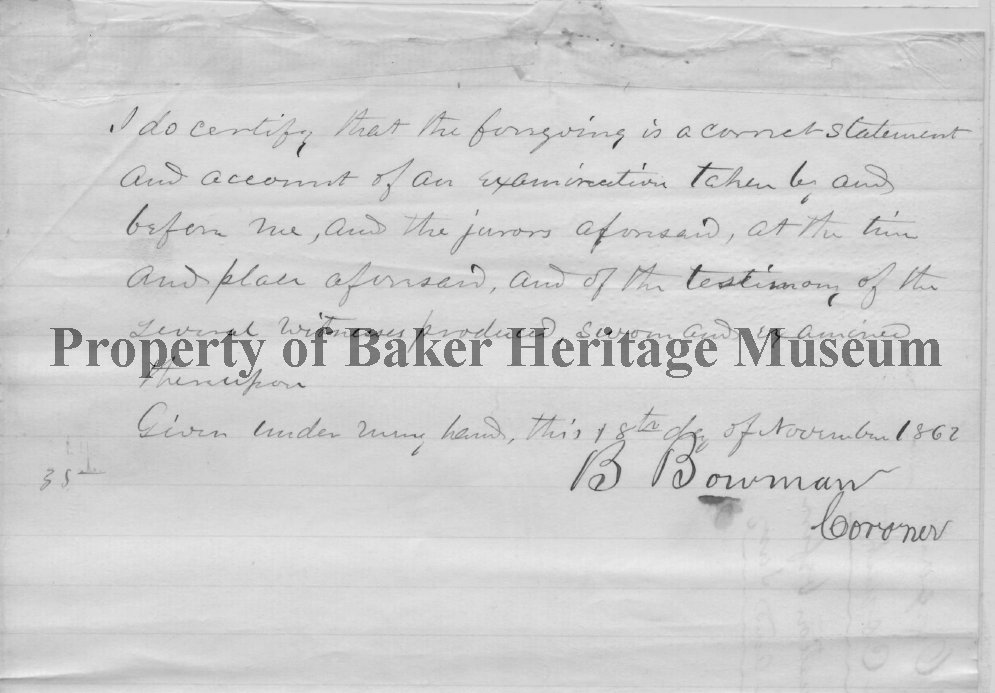 I do certify that the foregoing is a correct statement
and account of an examination taken by and
before me, and the jurors aforesaid, at the time
and place aforesaid, and of the testimony of the
several witnesses produced, sworn and examined
Property of Baker Heritage Museum
thereupon
Given under my hand, this 18th day of November 1862
B Bowman
Coroner